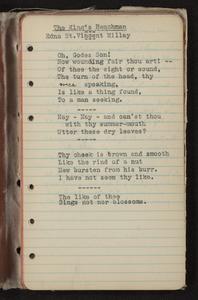 The King's Henchman
Edna St. Vincent Millay
Oh, Godes Son!
How wounding fair thou art! --
Of thee the sight or sound,
The turn of the head, thy
speaking,
Is like a thing found,
To a man seeking.
-----
Nay - Nay - and can'st thou
with thy summer-mouth
Utter these dry leaves?
-----
Thy cheek is brown and smooth
Like the rind of a nut
New bursten from his burr.
I have not seen thy like.
------
The like of thee
Sings not nor blossoms.